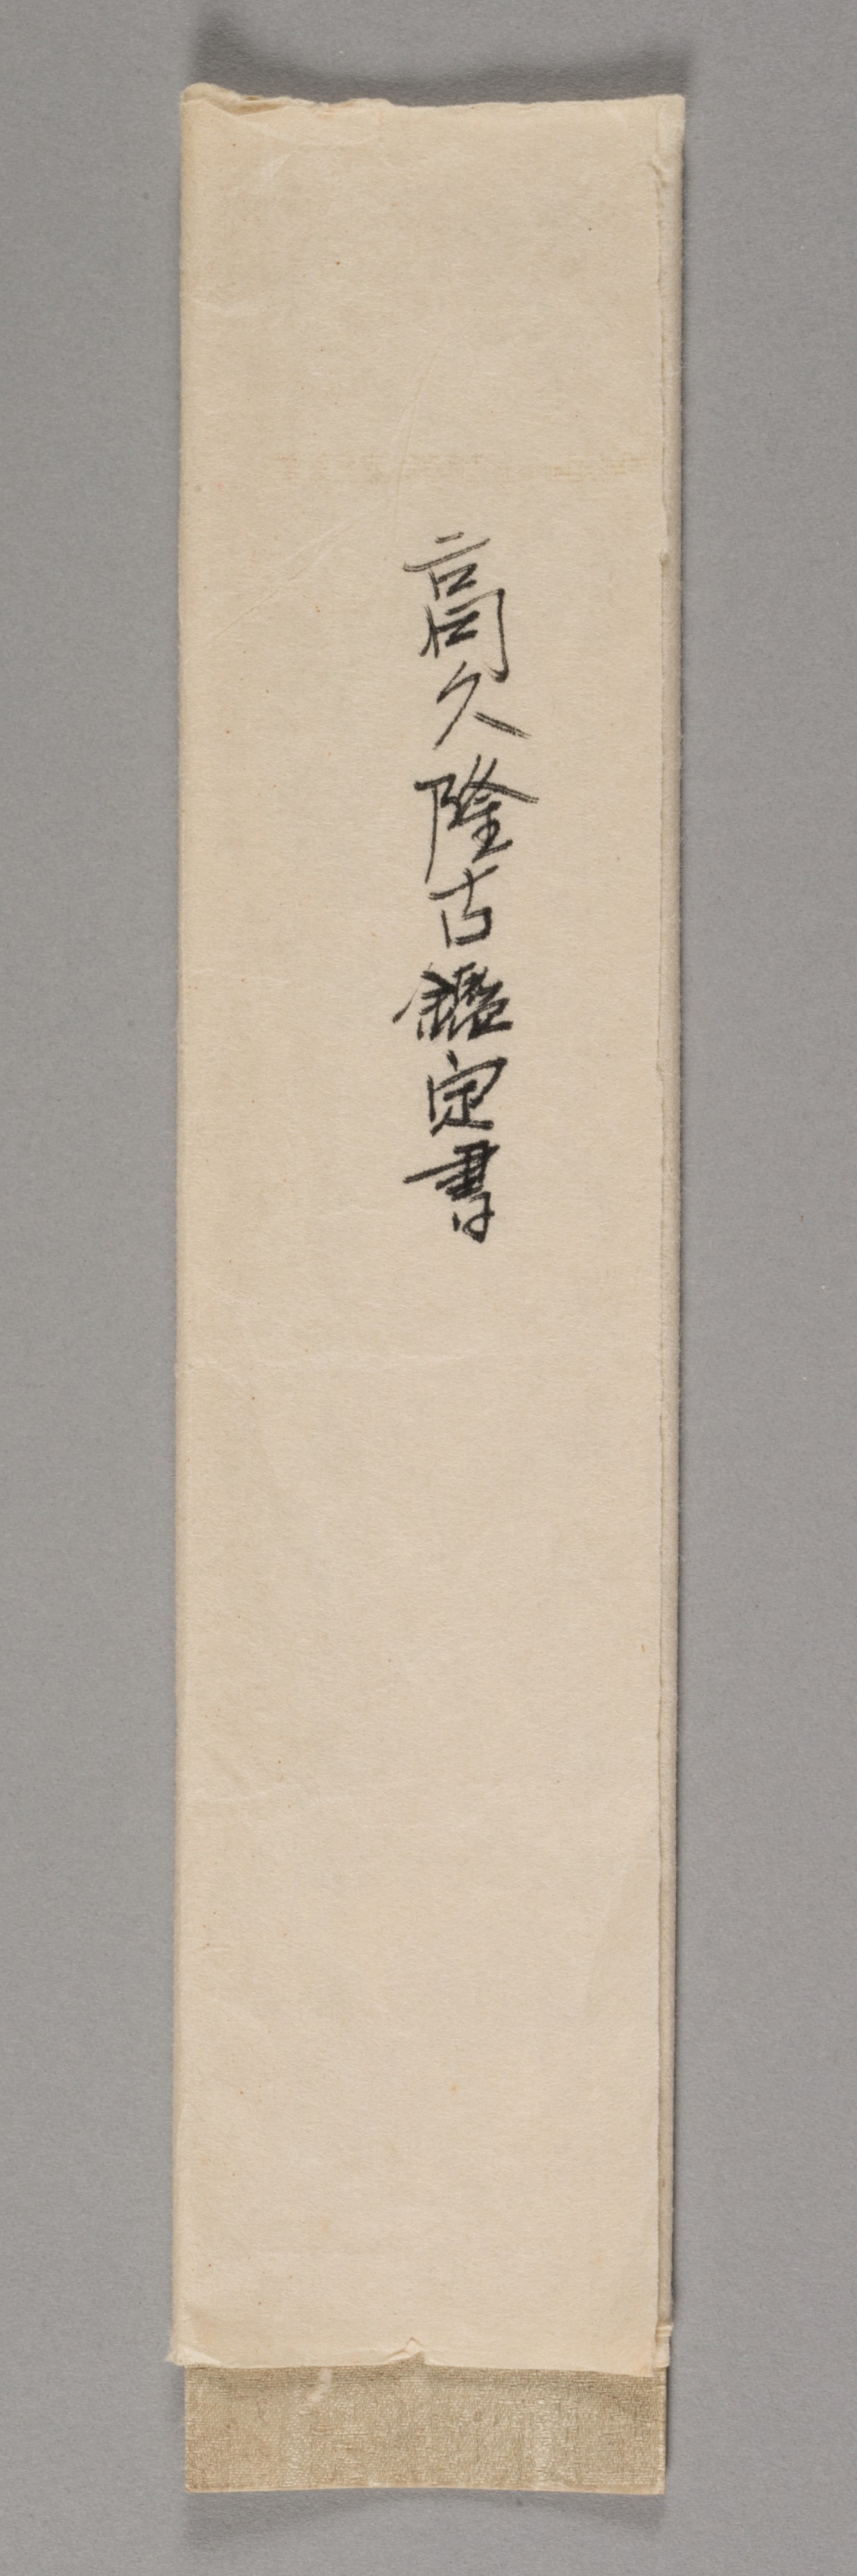 高久隆古鑑定書